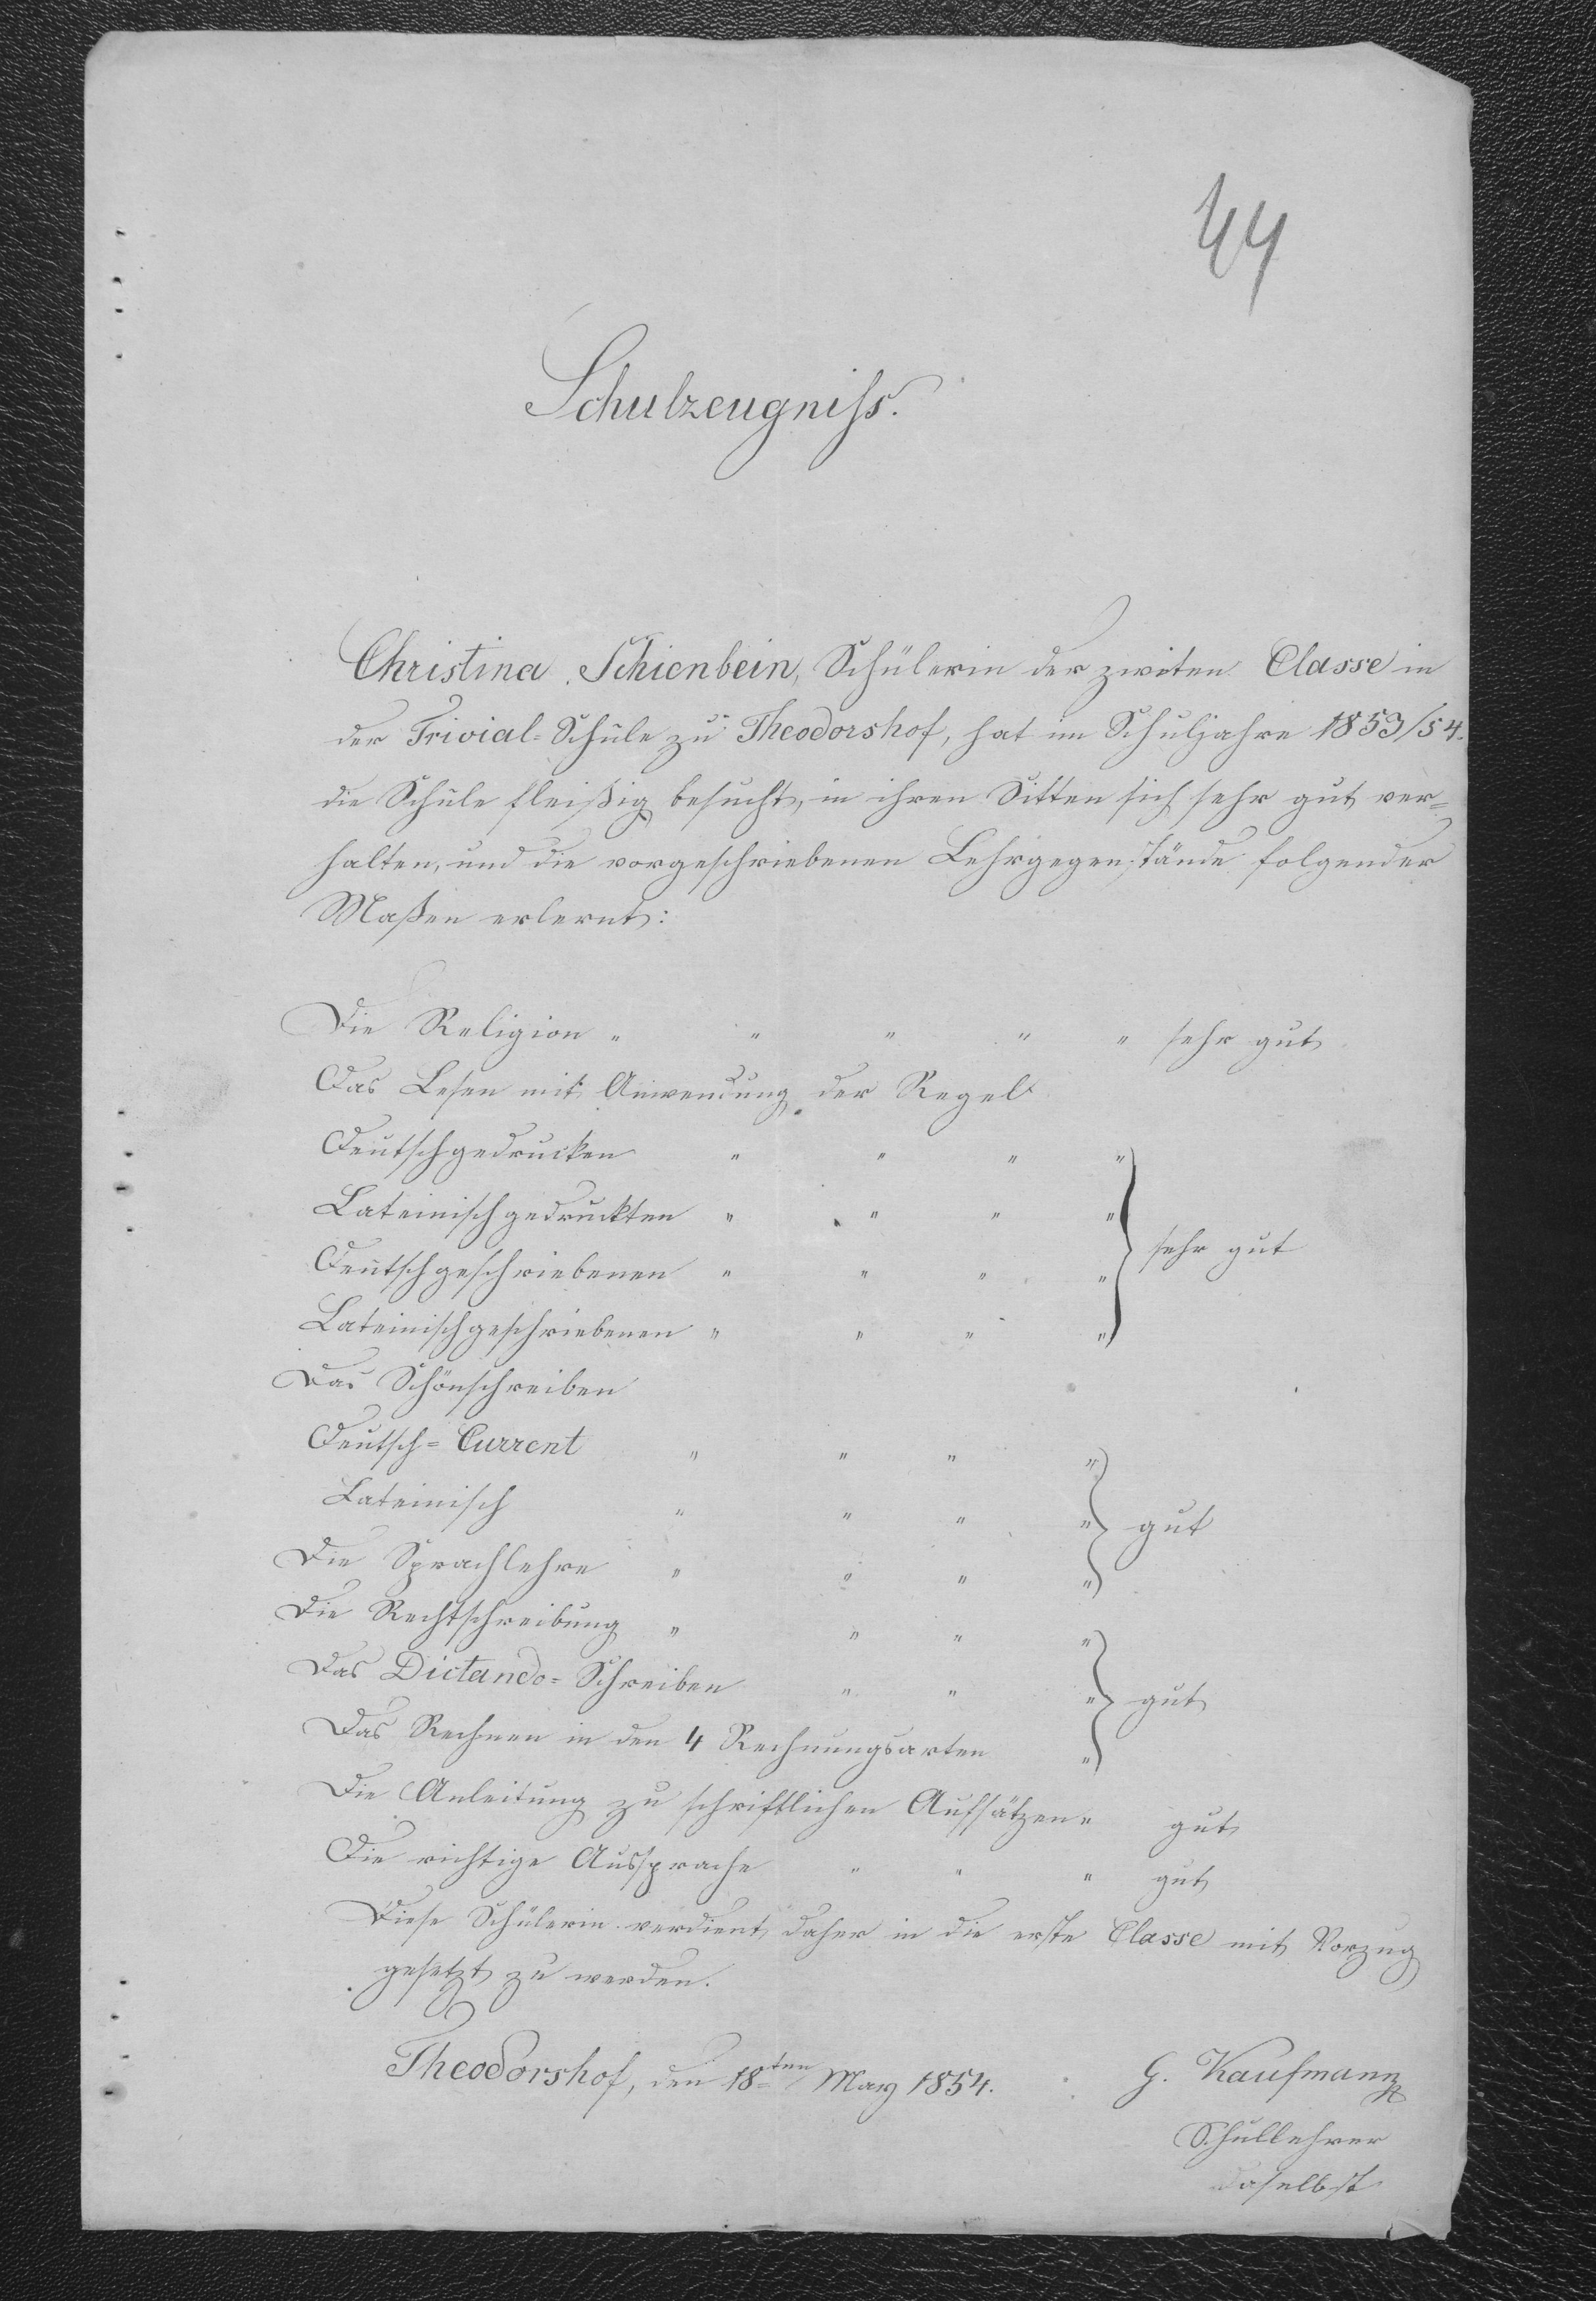 44
Schulzeugniſs.
Christina Schienbein, Schülerin der zweiten Classe in
der Trivial-Schule zu Theodorshof, hat im Schuljahre 1853/54.
die Schule fleißig besucht, in ihren Sitten sich sehr gut ver=
halten, und die vorgeschriebenen Lehrgegenstände folgender
Maßen erlernt:
Die Religion " " " " " sehr gut
Das Lesen mit Anwendung der Regel
Deutschgedrucken " " " "
Lateinischgedruckten " " " "
Deutschgeschriebenen " " " " sehr gut
Lateinischgeschriebenen " " " "
Das Schönschreiben
Deutsch=Current " " " "
Lateinisch " " " " gut
Die Sprachlehre " " " "
Die Rechtschreibung " " " "
Das Dictando=Schreiben " " " gut
Das Rechnen in den 4 Rechnungsarten "
Die Anleitung zu schriftlichen Aufsätzen " gut
Die richtige Aussprache " " " gut
Diese Schülerin verdient daher in die erste Classe mit Vorzug
gesetzt zu werden.
Theodorshof, den 18ten May 1854.
G. Kaufmann
Schullehrer
daselbst